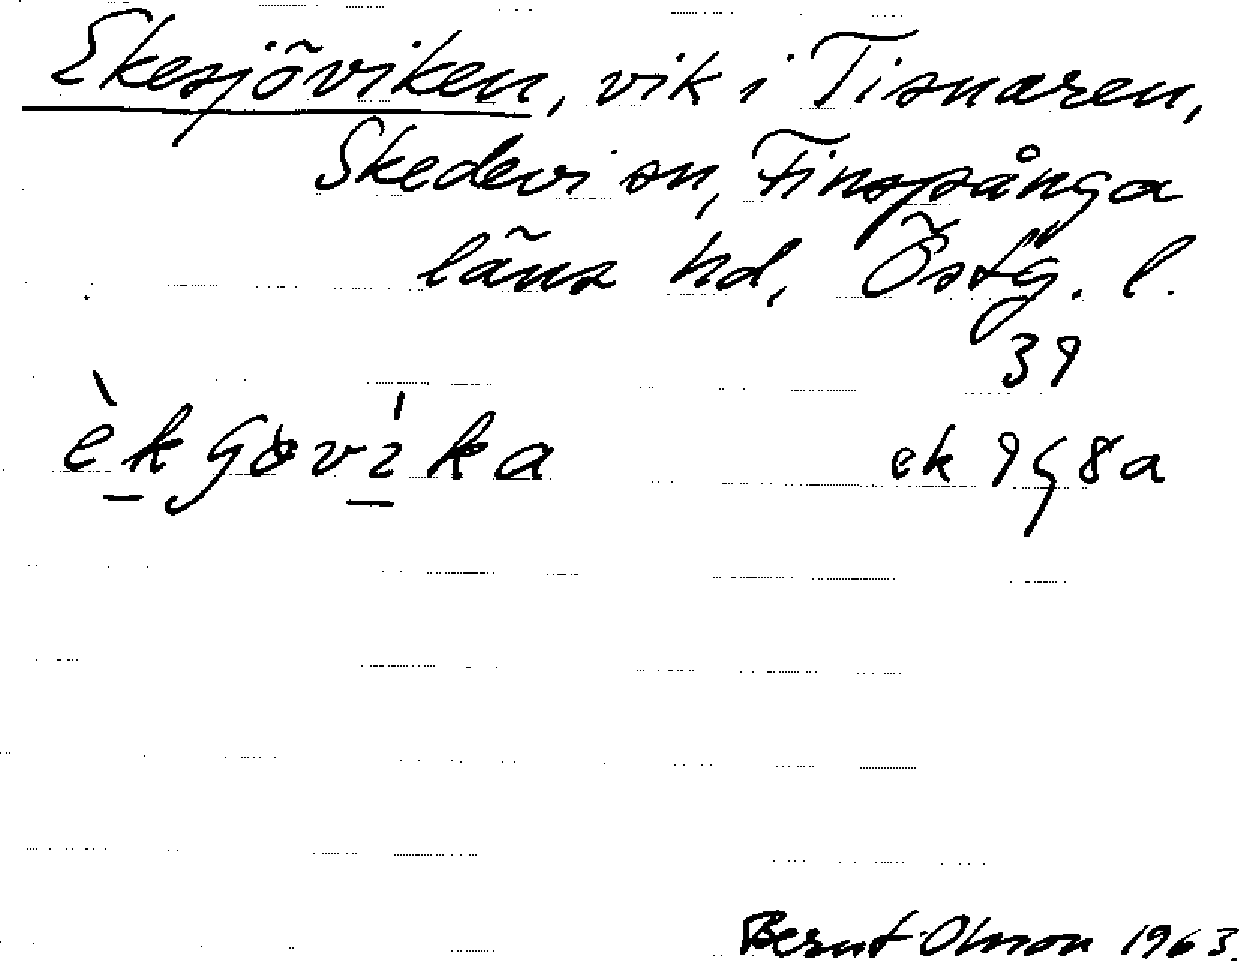 Ekesjöviken, vik i Tisnaren,
Skedevi sn, Finspånga
läns hd, Östg. l.
39
ek 9G8a
Bernt Olsson 1963.